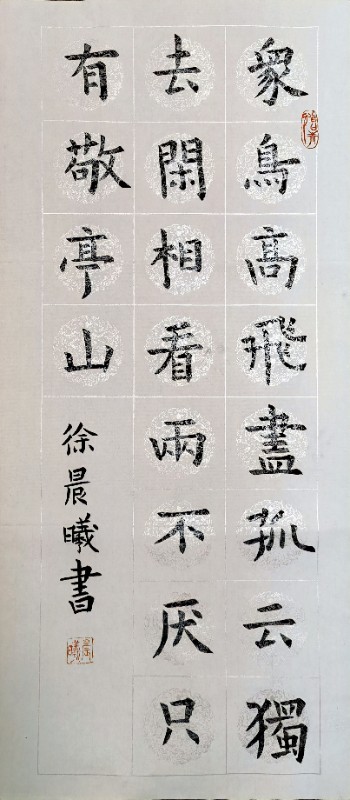 眾鳥高飛盡孤云獨
去閑相看兩不厌只
有敬亭山
徐晨曦書